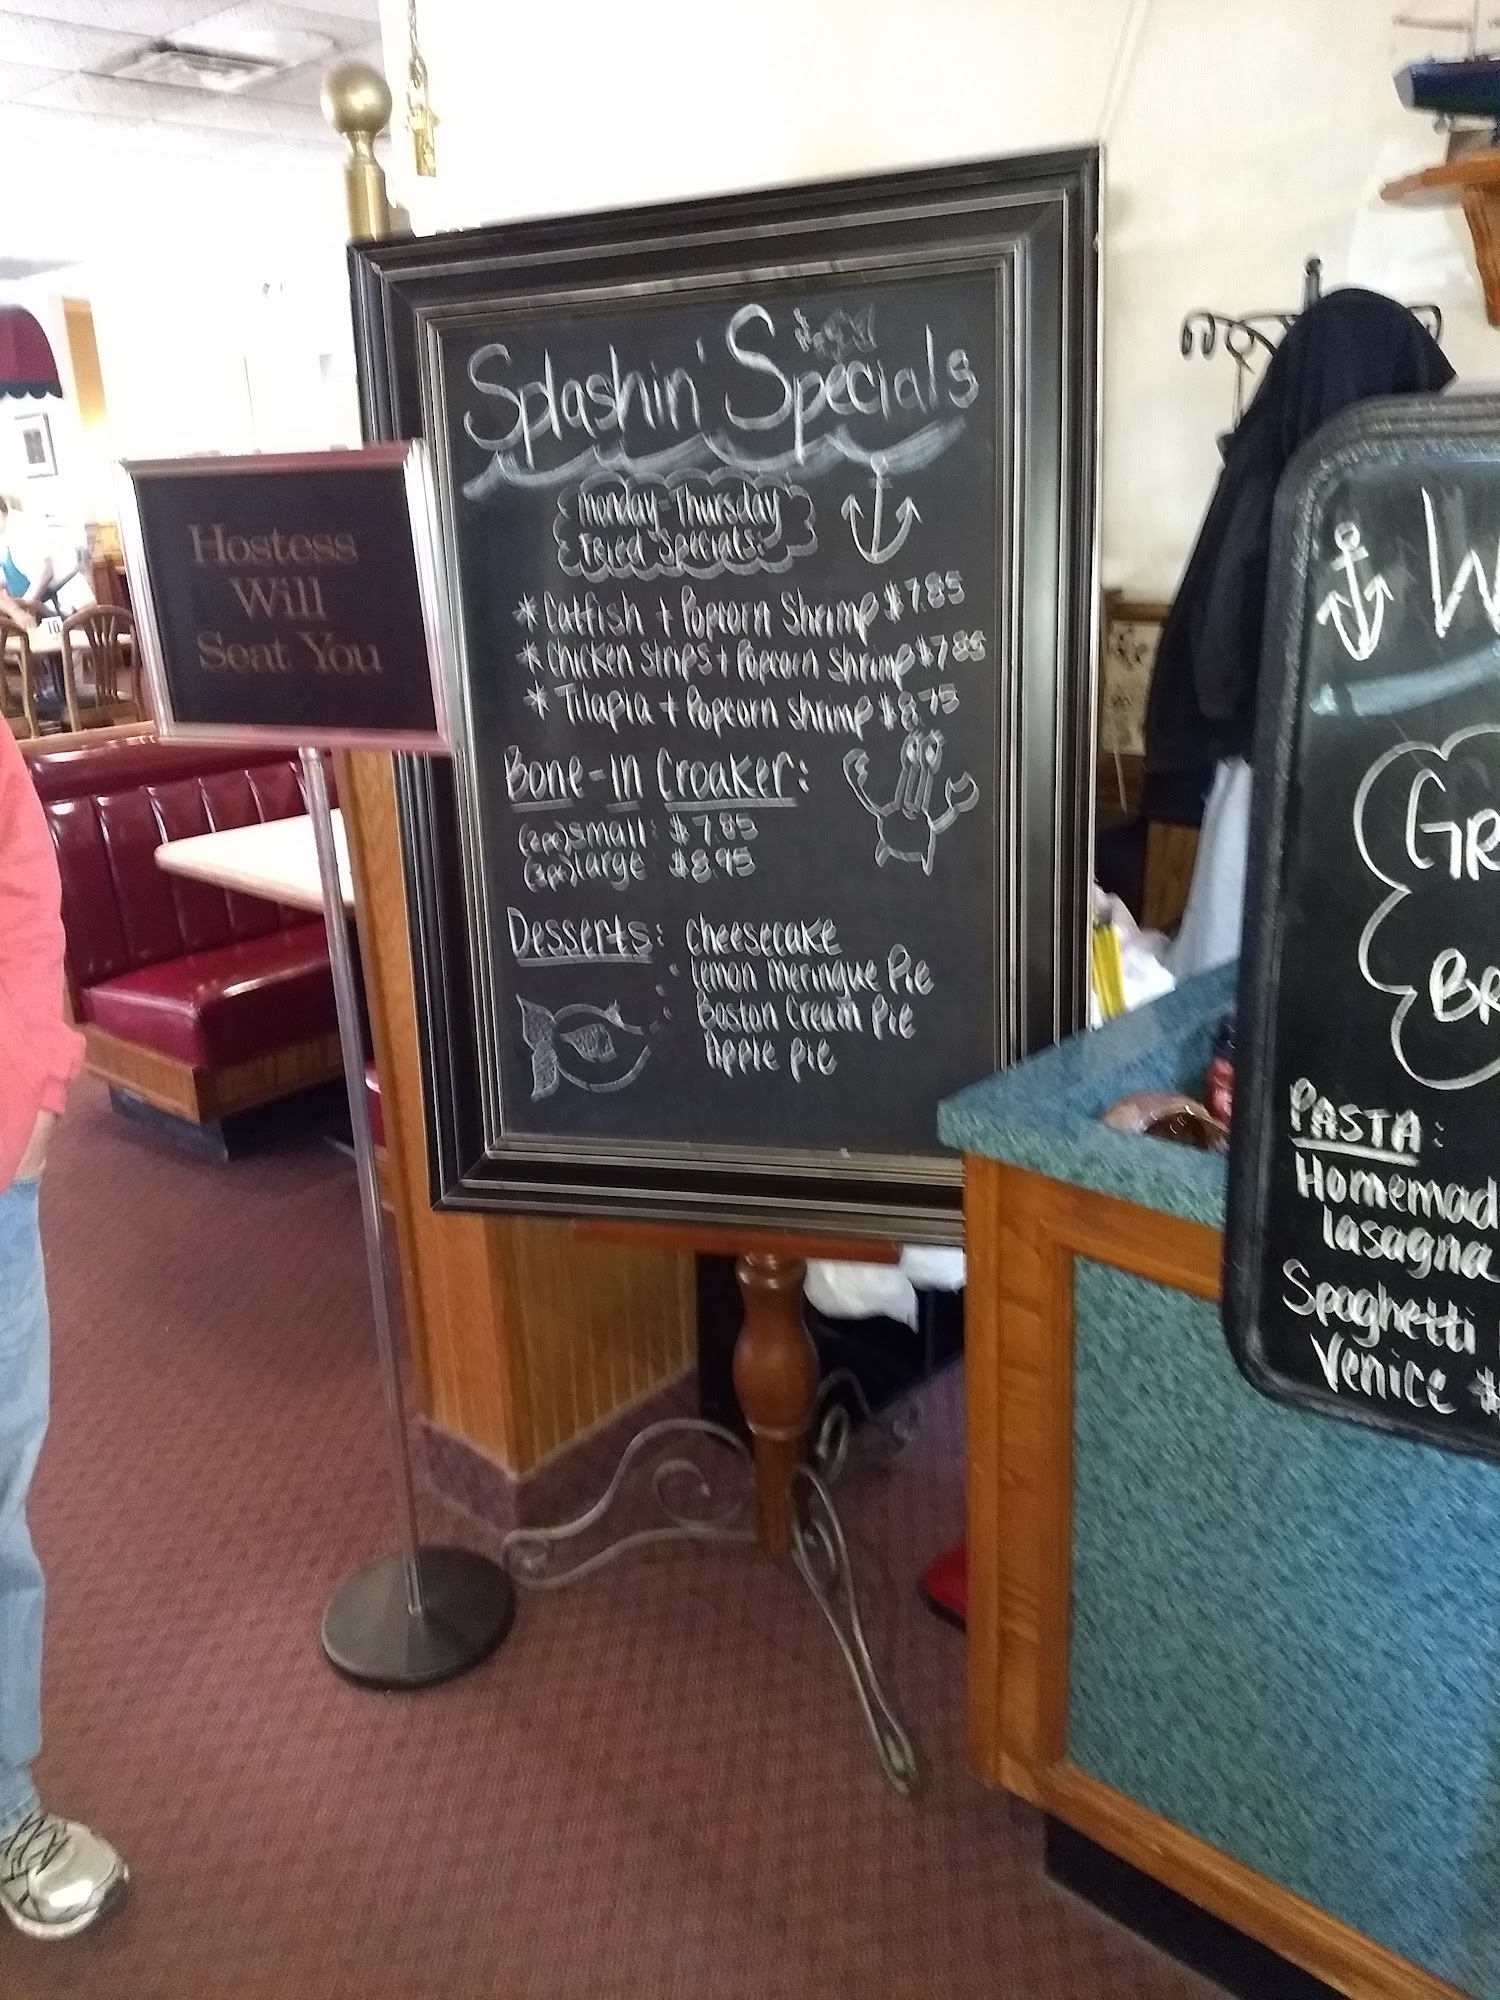 Hostess
Will
Seat You
Splashin' Specials
Monday-Thursday
Fried Specials:
* Catfish + Popcorn Shrimp $7.85
* Chicken Strips + Popcorn Shrimp $7.85
* Tilapia + Popcorn Shrimp $8.75
Bone-In Croaker:
(2pc) Small: $7.85
(3pc) Large $8.95
Desserts: Cheesecake
Lemon Meringue Pie
Boston Cream Pie
Apple Pie
W
GR
BR
PASTA:
Homemad
Lasagna
Spaghetti
Venice $
10